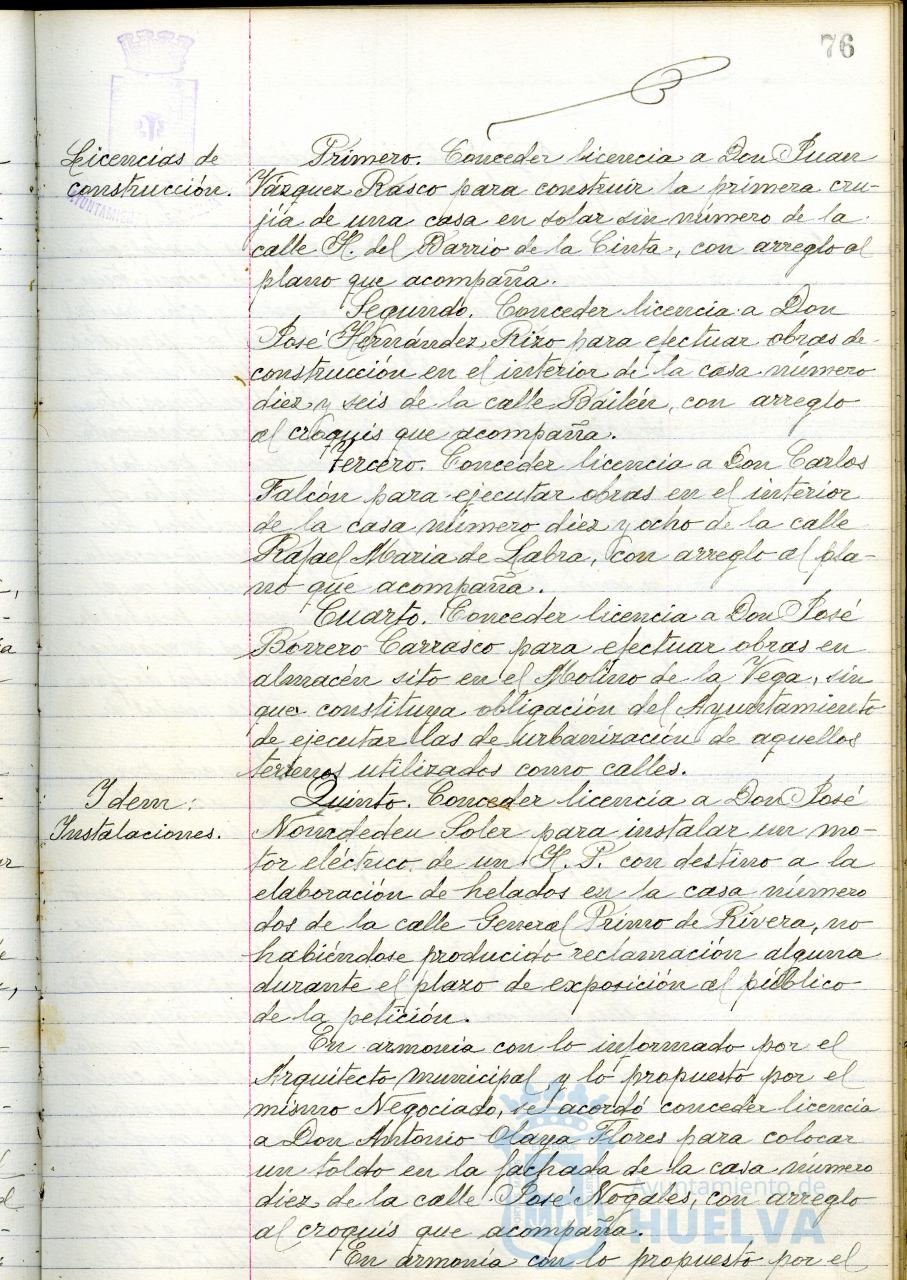 76
Licencias de
construcción.
Primero. Conceder licencia a Don Juan
Vázquez Rasco para construir la primera cru-
jía de una casa en solar sin número de la
calle H. del Barrio de la Cinta, con arreglo al
plano que acompaña.
Segundo. Conceder licencia a Don
José Hernández Rizo para efectuar obras de
construcción en el interior de la casa número
diez y seis de la calle Bailén, con arreglo
al croquis que acompaña.
Tercero. Conceder licencia a Don Carlos
Falcón para ejecutar obras en el interior
de la casa número diez y ocho de la calle
Rafael María de Labra, con arreglo al pla-
no que acompaña.
Cuarto. Conceder licencia a Don José
Borrero Carrasco para efectuar obras en
almacén sito en el Molino de la Vega, sin
que constituya obligación del Ayuntamiento
de ejecutar las de urbanización de aquellos
terrenos utilizados como calles.
Idem:
Instalaciones.
Quinto. Conceder licencia a Don José
Noucdedeu Soler para instalar un mo-
tor eléctrico de un H.P. con destino a la
elaboración de helados en la casa número
dos de la calle General Primo de Rivera, no
habiéndose producido reclamación alguna
durante el plazo de exposición al público
de la petición.
En armonía con lo informado por el
Arquitecto municipal y lo propuesto por el
mismo Negociado, se acordó conceder licencia
a Don Antonio Olaya Flores para colocar
un toldo en la fachada de la casa número
diez de la calle José Nogales, con arreglo
al croquis que acompaña.
En armonía con lo propuesto por el
Ayuntamiento de
HUELVA